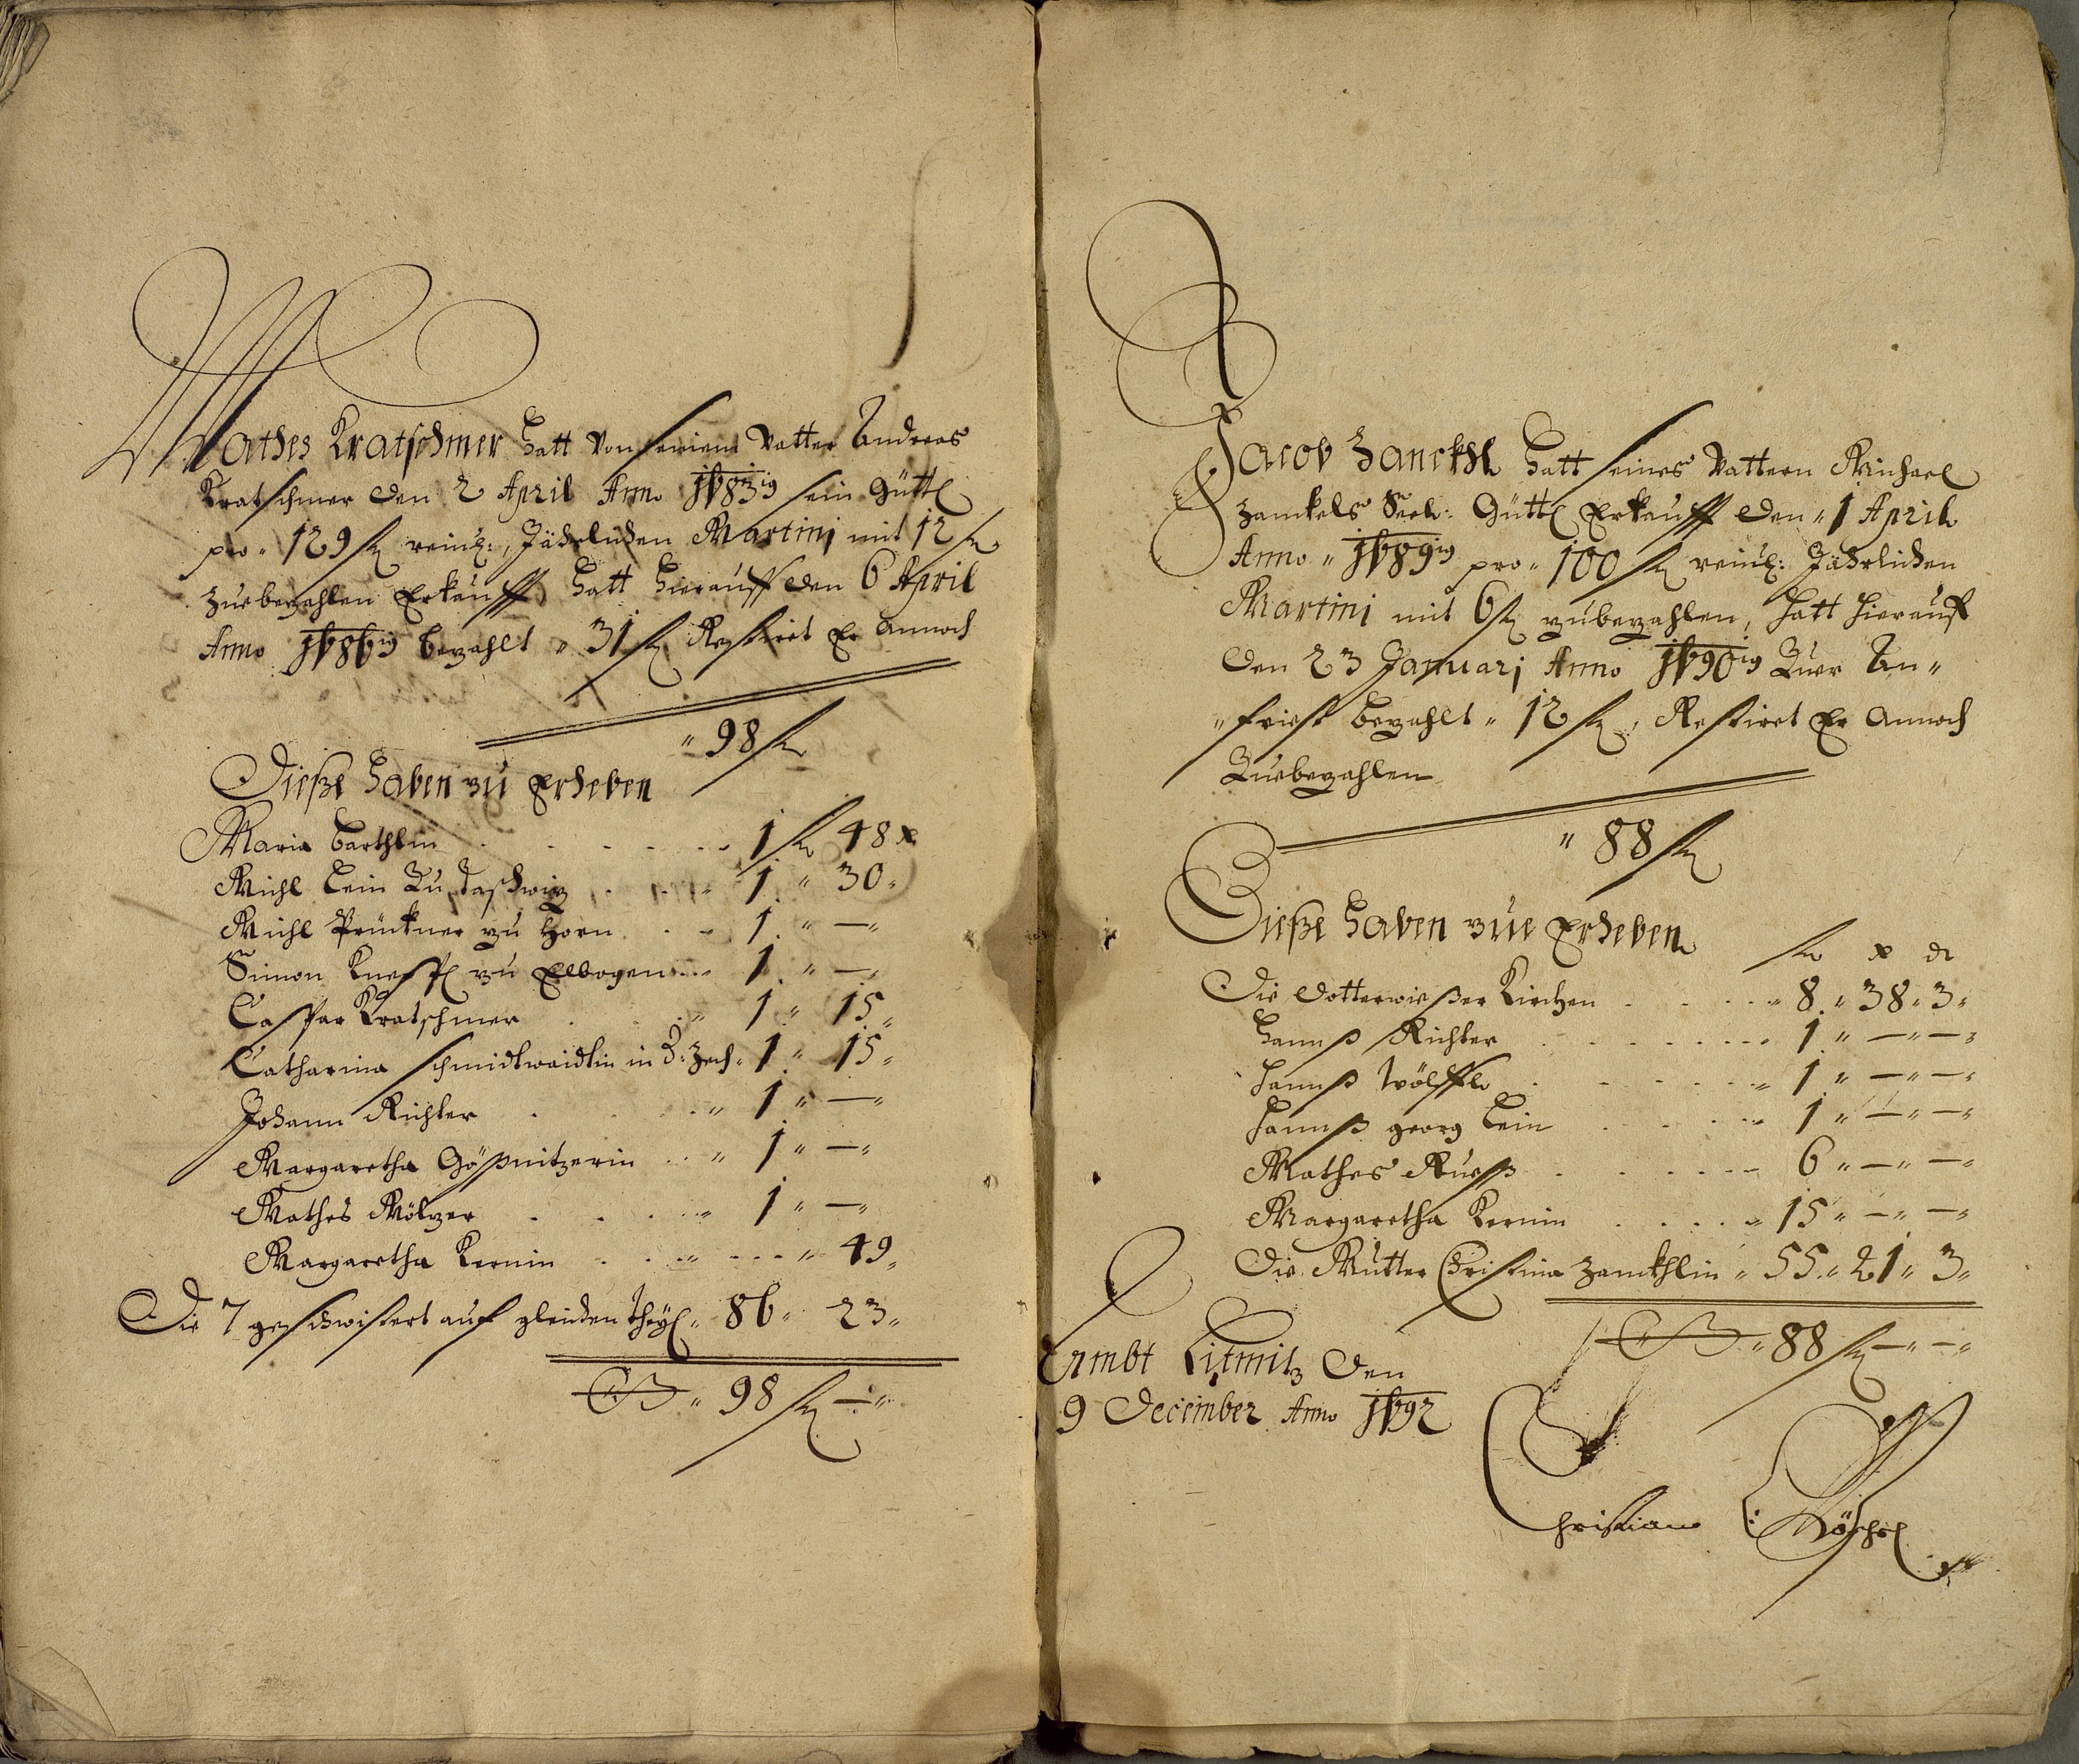 Mathes Kratschmer hatt von seinem Vatter Andreas
Kratschmer den 2 April Anno 1683ig sein Güttl
pro " 129 fl reinl:, Jährlichen Martinj mit 12 fl
zuebezahlen Erkaufft hatt hierauff den 6 April
Anno 1686ig bezahlt " 31 fl Restiret Er annoch
" 98 fl
Dieße haben zu Erheben
Maria Barthlin 1 fl 48 x
Michl Lein zu Taschwiz 1 " 30 "
Michl Prückner zu Horn 1 " — "
Simon Knepfl zu Elbogen 1 " — "
Caspar Kratschmer 1 " 15 "
Catharina Schmidtwaidlin in D: Zech " 1 " 15 "
Johann Richter " 1 " — "
Margaretha Gößnitzerin " 1 " — "
Mathes Mölzer " 1 " — "
Margaretha Kernin " 49 "
Die 7 geschwistert auf gleichen Theyl " 86 " 23 "
" 98 fl — "
Jacob Zanckhl hatt seines Vattern Michael
Zanckels Seel: Güttl Erkaufft den " 1 April
Anno " 1689ig pro " 100 fl reinl: Jährlichen
Martinj mit 6 fl zubezahlen, hatt hierauf
den 23 Januarj Anno 1690ig Zuer An "
" frist bezahlt " 12 fl, Restiret Er annoch
Zuebezahlen
" 88 fl
Dieße haben zue Erheben
fl x d
Die Dotterwießer Kirchen " 8 " 38 " 3 "
Hannß Richter 1 " — " — "
Hannß Wölffl " 1 " — " — "
Hannß georg Lein 1 " — " — "
Mathes Rueß 6 " — " — "
Margaretha Kernin " 15 " — " — "
Die Mutter Christina Zanckhlin " 55 " 21 " 3 "
" 88 fl — " — "
Ambt Litmitz Den
9 December Anno 1692
Christian